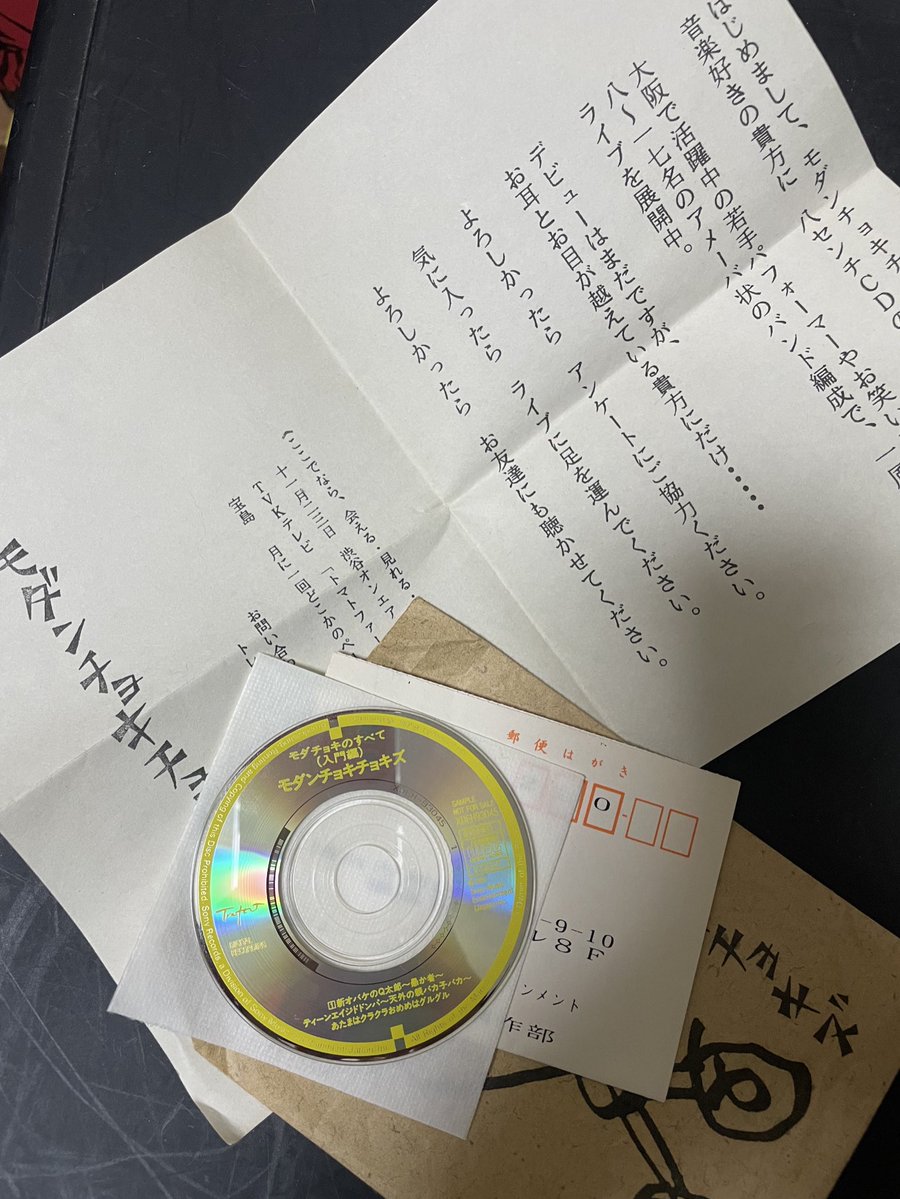 はじめまして、モダンチョキチ
音楽好きの貴方に 八センチCDの
大阪で活躍中の若手パフォーマーやお笑い
八〜一七名のアメーバ状のバンド編成で、一風
ライブを展開中。
デビューはまだですが、
お耳とお目が越えている貴方にだけ・・・・・
よろしかったら アンケートにご協力ください。
気に入ったら ライブに足を運んでください。
よろしかったら お友達にも聴かせてください。
《ここでなら、会える・見れる・
十一月二三日 渋谷オンエアー
TVKテレビ 「トマトファ
宝島 月に一回どこかのペ
お問い合
モダンチョキチ
モダチョキのすべて
(入門編)
モダンチョキチョキズ
SAMPLE
NOT FOR SALE
①新オバケのQ太郎〜愚か者〜
ティーンエイジドドンパ〜天外の親バカ子バカ〜
あたまはクラクラおめめはグルグル
郵便はがき
0
-9-10
レ8F
ンメント
作部
チョキズ